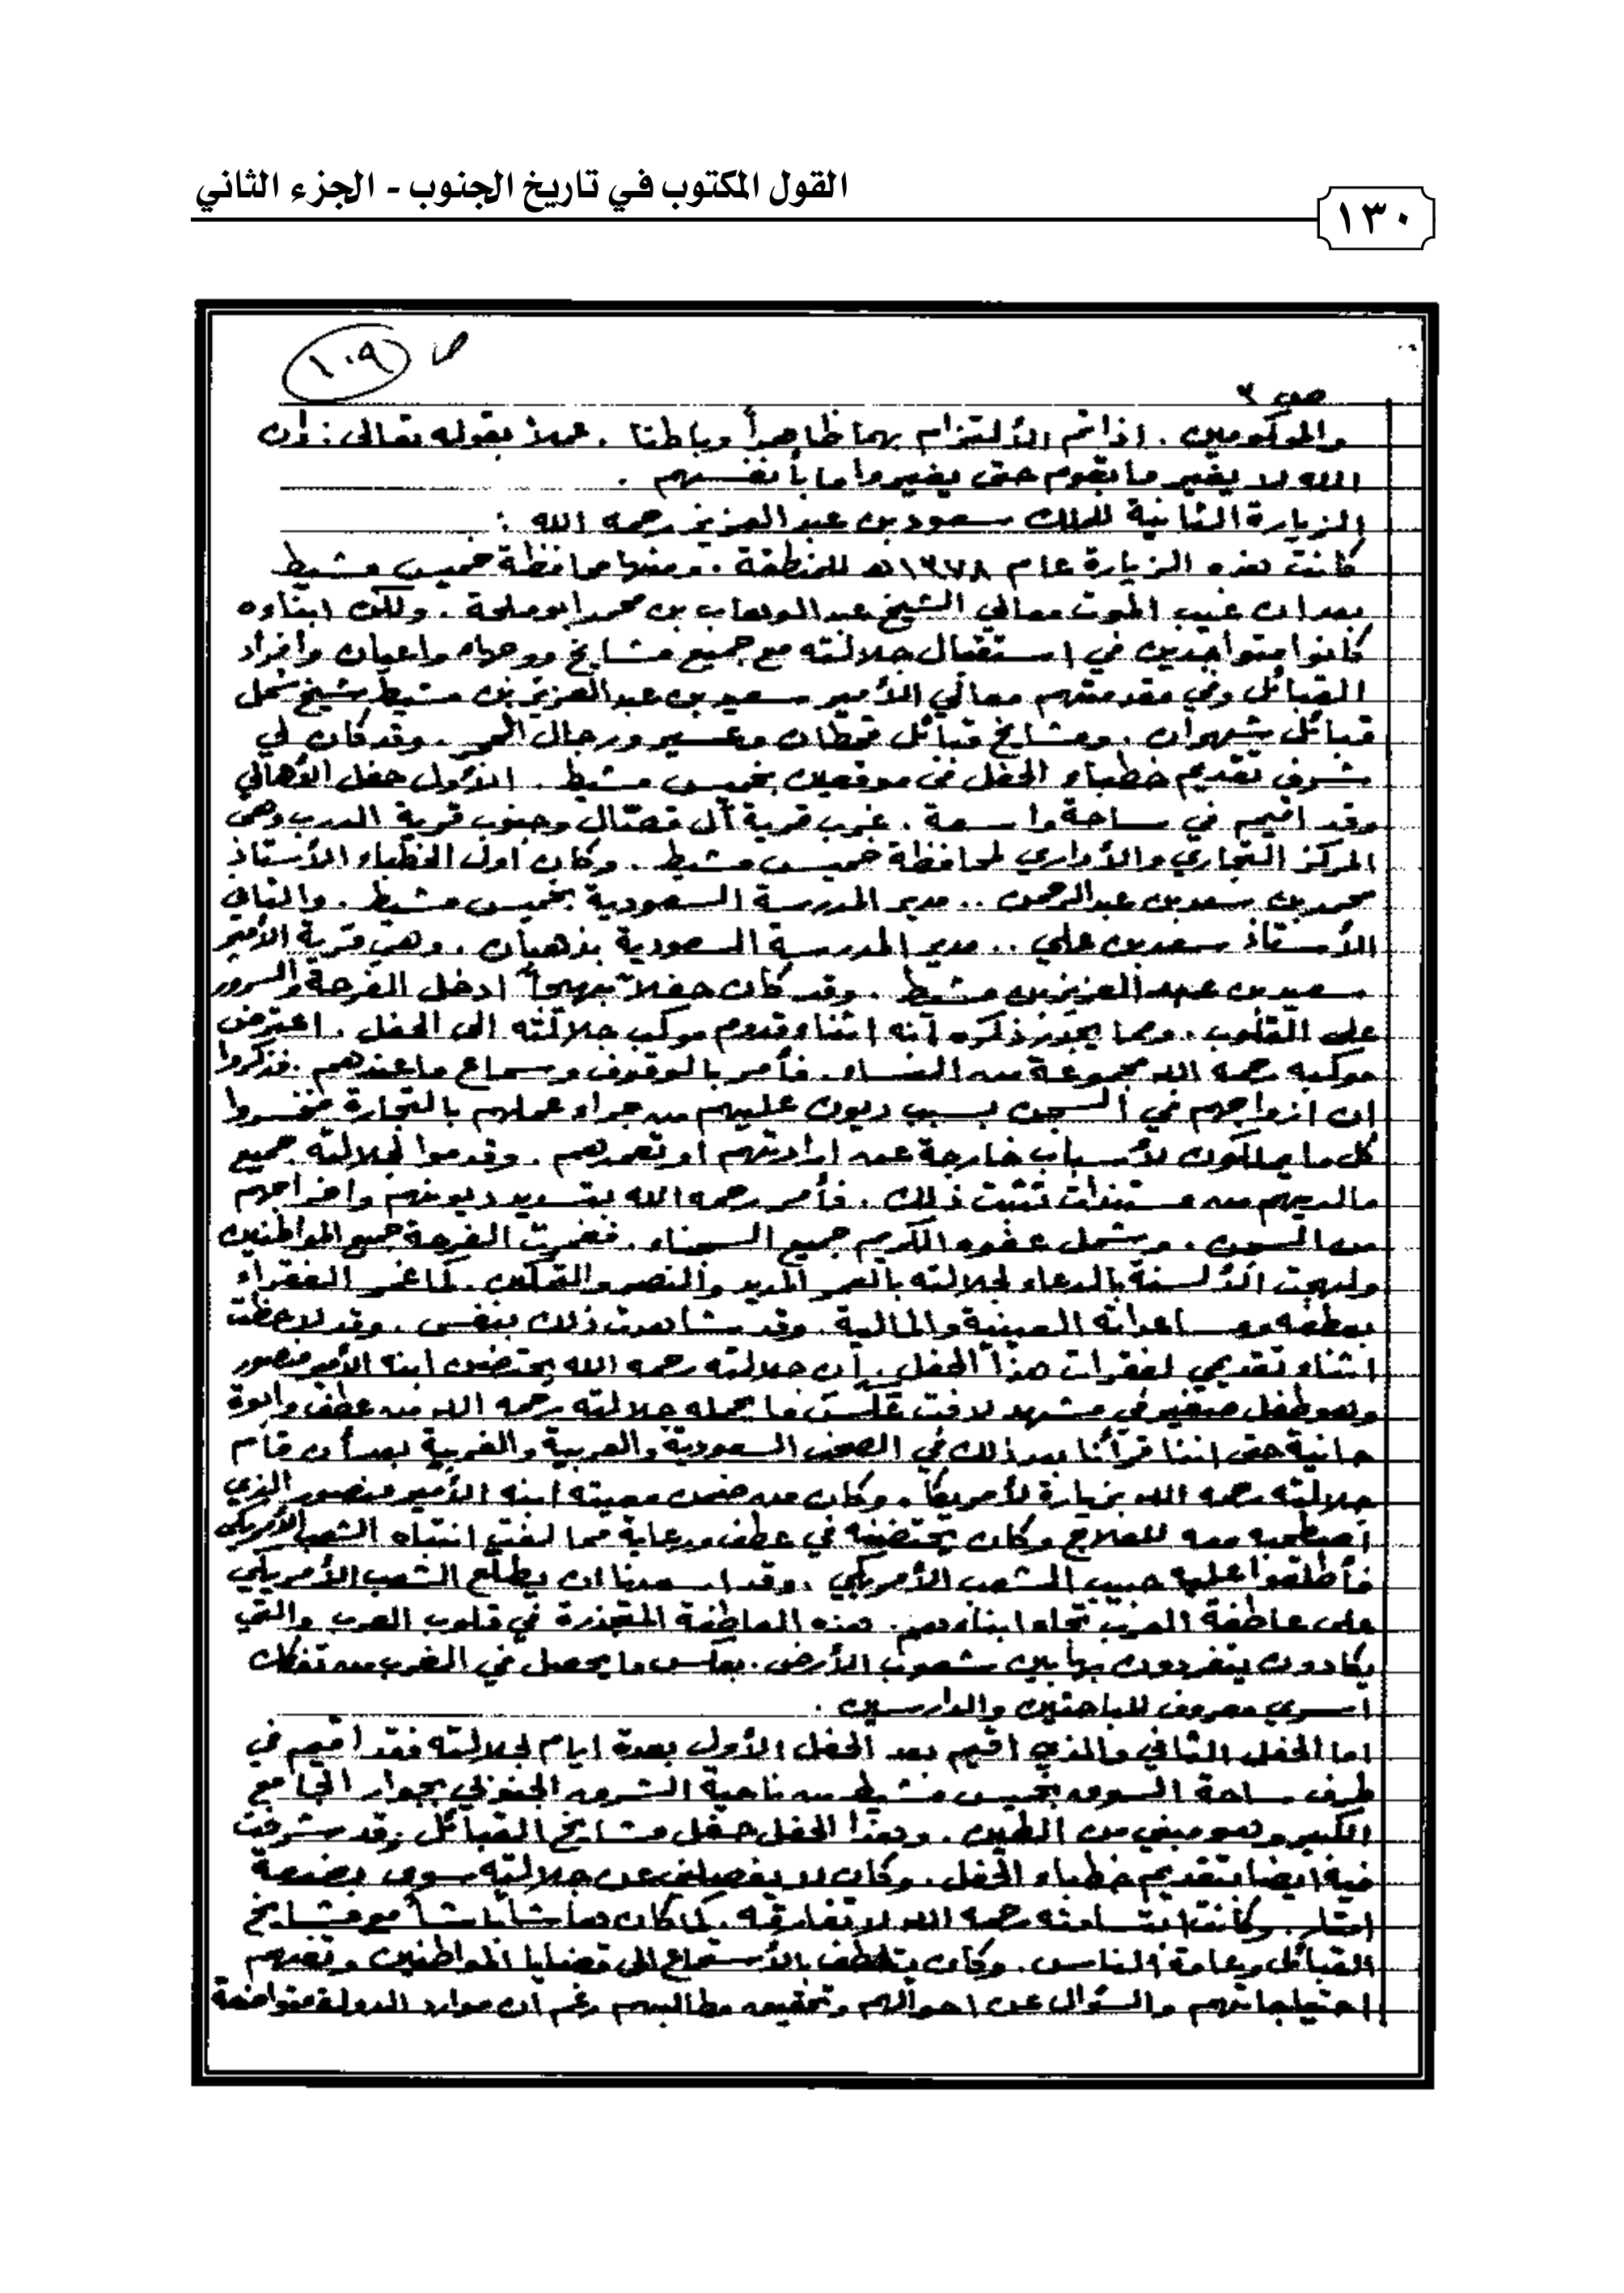 القول المكتوب في تاريخ الجنوب - الجزء الثاني
١٣٠
ص ١٠٩
ص ٢
والمحكومين . اذا تم الألتزام بهما ظاهراً وباطنا . عملاً بقوله تعالى : إن
الله لا يغير ما بقوم حتى يغيروا ما بأنفسهم .
الزيارة الثانية للملك سعود بن عبد العزيز رحمه الله :
كانت هذه الزيارة عام ١٣٧٨هـ للمنطقة . ومنها محافظة خميس مشيط
بعد ان غيب الموت معالي الشيخ عبد الوهاب بن محمد ابو ملحة . ولكن ابناوه
كانوا متواجدين في استقبال جلالته مع جميع مشايخ ووجهاء واعيان وافراد
القبائل وفي مقدمتهم معالي الأمير سعيد بن عبد العزيز بن مشيط شيخ شمل
قبائل شهران . ومشايخ قبائل قحطان وعسير ورجال الحجر . وقد كان لي
شرف تقديم خطباء الحفل في موقعين بخميس مشيط . الأول حفل الأهالي
وقد اقيم في ساحة واسعة . غرب قرية آل قصّال وجنوب قرية الدرب وهي
المركز التجاري والأداري لمحافظة خميس مشيط . وكان اول الخطباء الأستاذ
محمد بن سعد بن عبد الرحمن .. مدير المدرسة السعودية بخميس مشيط . والثاني
الأستاذ سعد بن علي .. مدير المدرسة السعودية بذهبان . وهي قرية الأمير
سعيد بن عبد العزيز بن مشيط . وقد كان حفلاً بهيجاً ادخل الفرحة والسرور
على القلوب . ومما يجدر ذكره أنه اثناء قدوم موكب جلالته الى الحفل . اعترض
موكبه رحمه الله مجموعة من النساء . فأمر بالوقوف وسماع ما عندهم . فذكروا
ان ازواجهم في السجن بسبب ديون عليهم من جراء عملهم بالتجارة فخسروا
كل ما يملكون لأسباب خارجة عن ارادتهم او تعمدهم . وقدموا لجلالته جميع
مالديهم من مستندات تثبت ذلك . فأمر رحمه الله بتسديد ديونهم واخراجهم
من السجن . وشمل عفوه الكريم جميع السجناء . فغمرت الفرحة جميع المواطنين
ولهجت الألسنة بالدعاء لجلالته بالعمر المديد والنصر والتمكين . كما غمر الفقراء
بعطفه ومساعداته العينية والمالية . وقد شاهدت ذلك بنفسي . وقد لاحظت
اثناء تقديمي لفقرات هذا الحفل . أن جلالته رحمه الله يحتضن ابنه الأمير منصور
وهو طفل صغير في مشهد لافت عكس ما يحمله جلالته رحمه الله من عطف وابوة
حانية حتى اننا قرأنا بعد ذلك في الصحف السعودية والعربية والغربية بعد أن قام
جلالته رحمه الله بزيارة لأمريكا . وكان من ضمن معيته ابنه الأمير منصور الذي
أصطحبه معه للعلاج وكان يحتضنه في عطف ورعاية مما لفت انتباه الشعب الأمريكي
فأطلقوا عليه حبيب الشعب الأمريكي . وقد اسعدنا ان يطلع الشعب الأمريكي
على عاطفة العرب تجاه ابناءهم . هذه العاطفة المتجذرة في قلوب العرب والتي
يكادون ينفردون بها بين شعوب الأرض . بعكس ما يحصل في الغرب من تفكك
اسري معروف للباحثين والدارسين .
اما الحفل الثاني والذي اقيم بعد الحفل الأول بعدة ايام لجلالته فقد اقيم في
طرف ساحة السوق بخميس مشيط من ناحية الشرق الجنوبي بجوار الجامع
الكبير وهو مبني من الطين . وهذا الحفل حفل مشايخ القبائل . وقد تشرفت
فيه ايضا بتقديم خطباء الحفل . وكان لا يفصلني عن جلالته سوى بضعة
امتار . وكانت ابتسامته رحمه الله لا تفارقه . كما كان بشاً مع مشايخ
القبائل وعامة الناس . وكان يتلطف بالأستماع الى قضايا المواطنين وتفهم
احتياجاتهم والسؤال عن احوالهم وتحقيق مطالبهم رغم ان موارد الدولة متواضعة